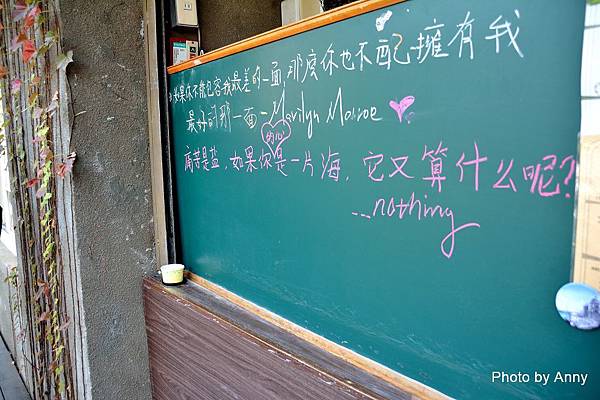 如果你不能包容我最差的一面,那麼你也不配擁有我
最好的那一面-Marilyn Monroe ♡.
痛苦是盐,如果你的心是一片海,它又算什么呢?
...nothing
Photo by Anny